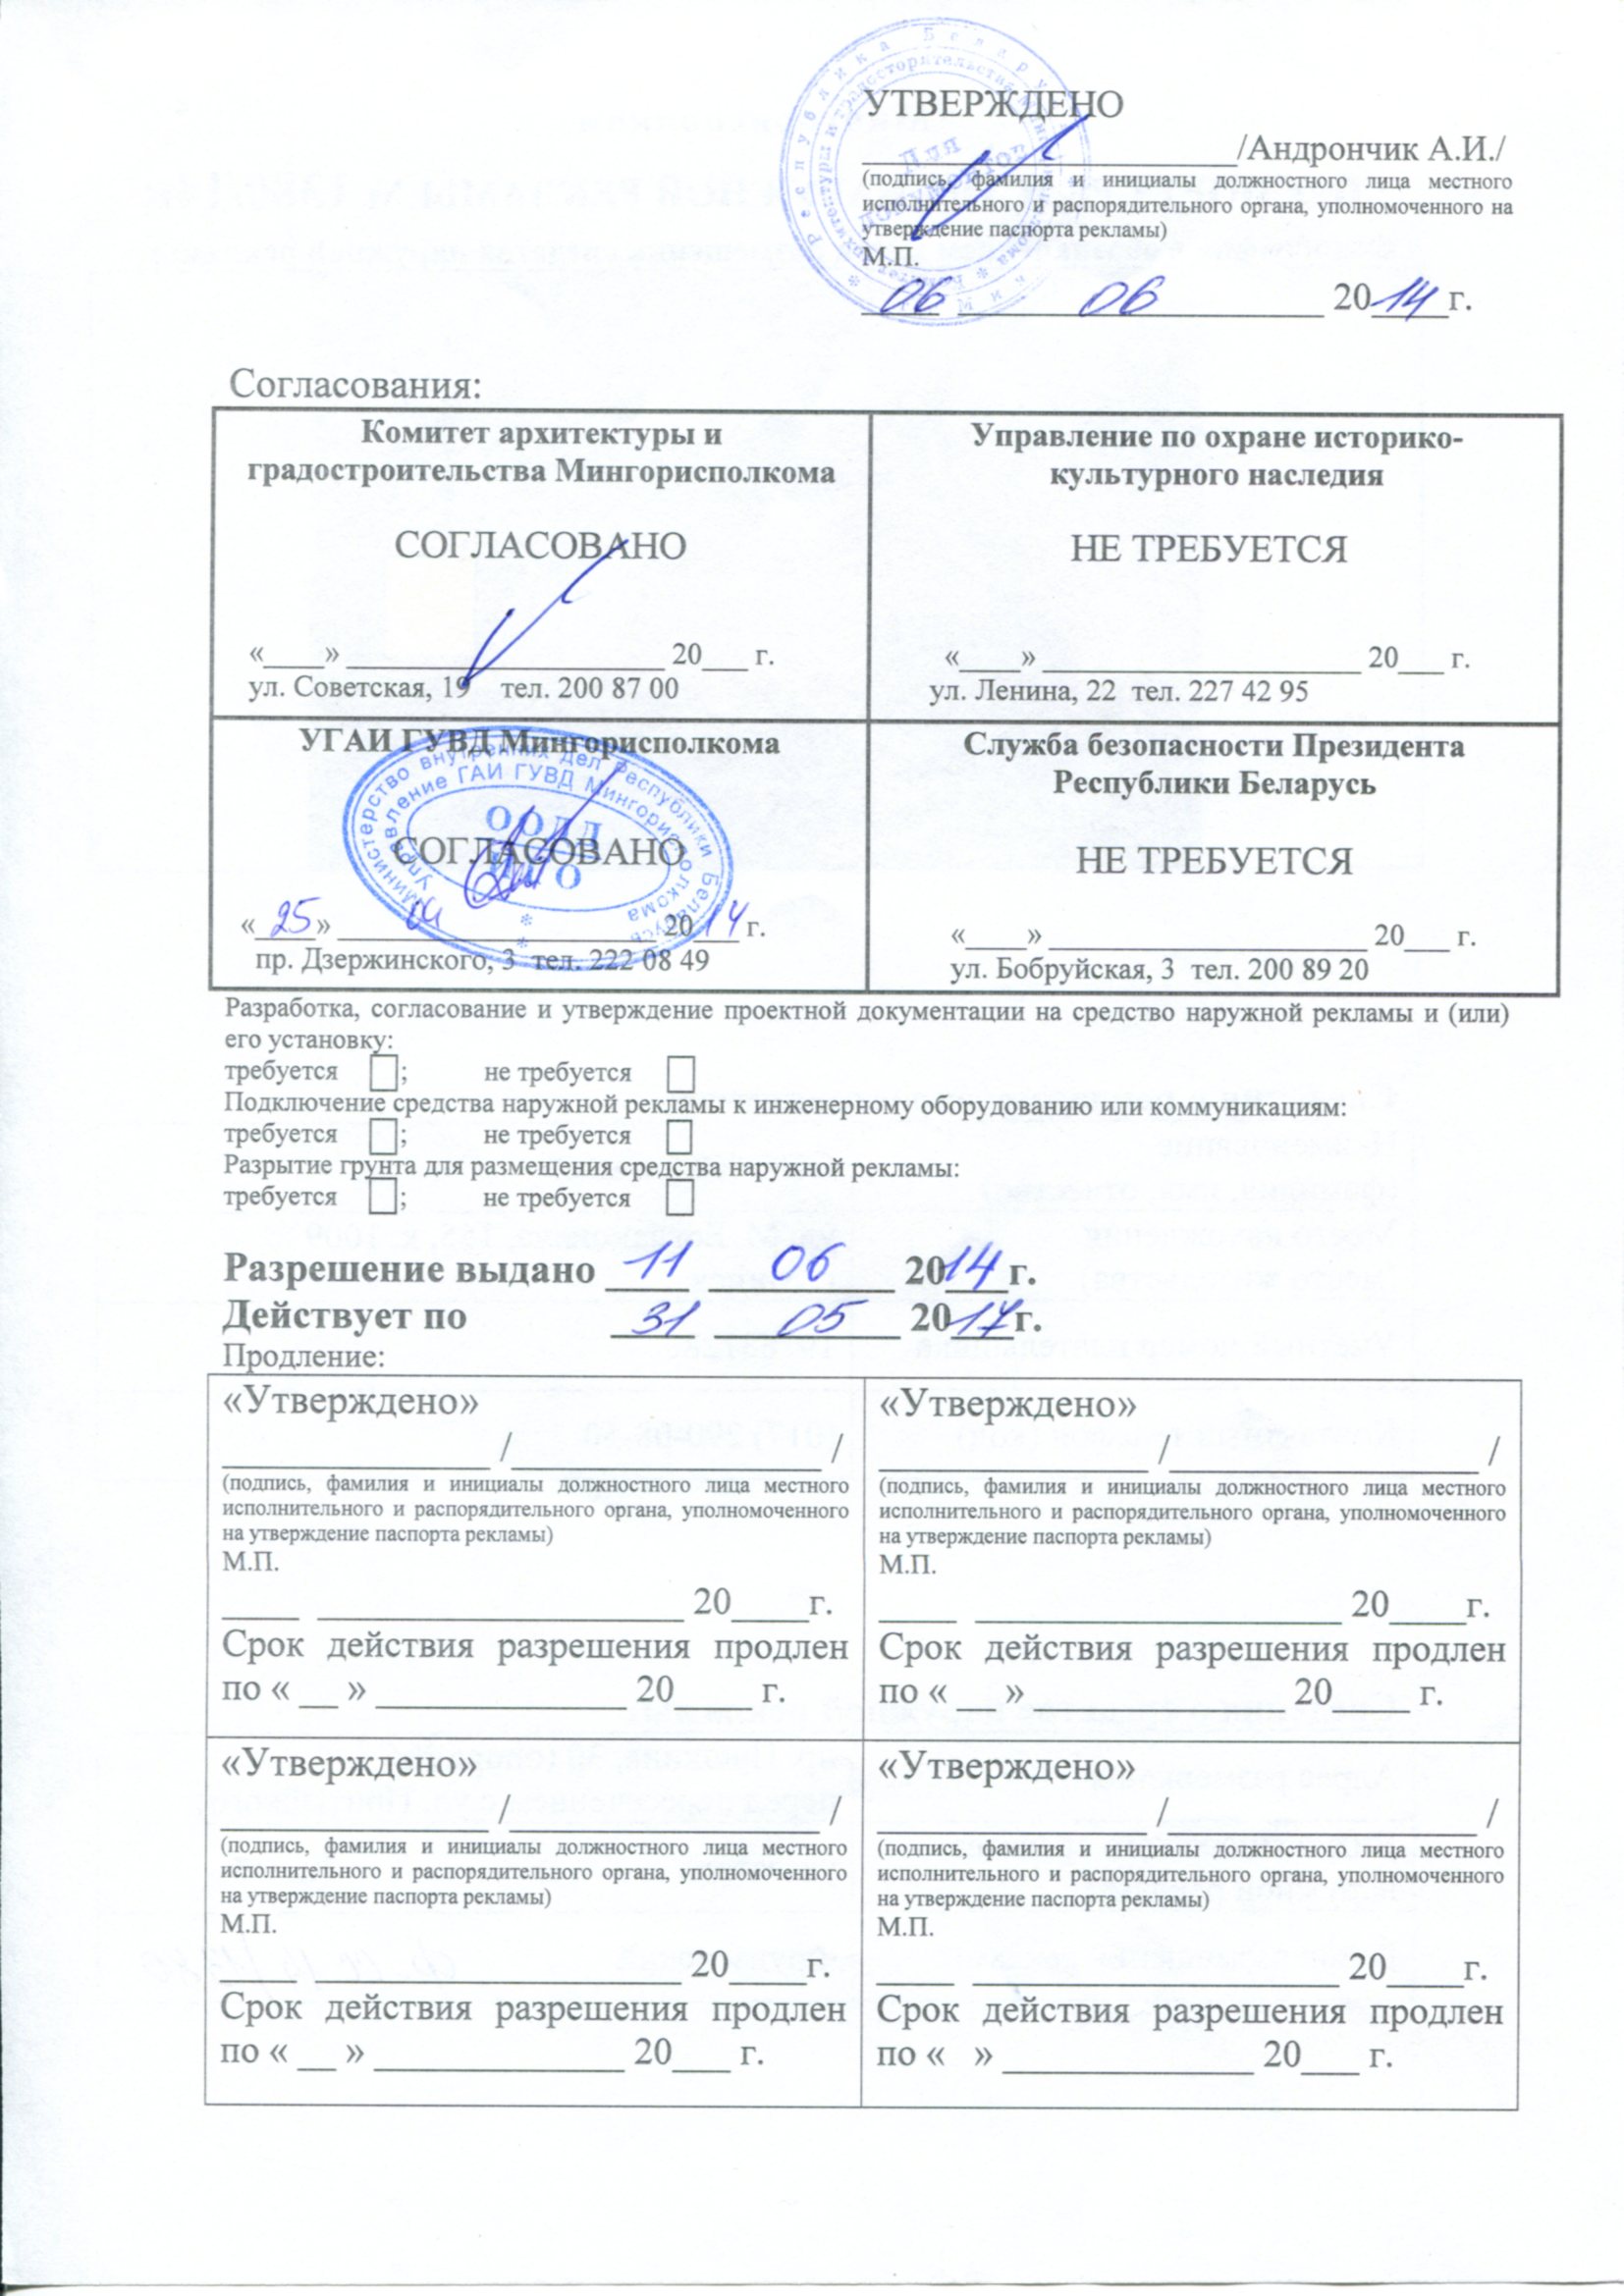 УТВЕРЖДЕНО
____________________/Андрончик А.И./
(подпись, фамилия и инициалы должностного лица местного
исполнительного и распорядительного органа, уполномоченного на
утверждение паспорта рекламы)
М.П.
06 06 2014 г.
Республика Беларусь
Для документов
Согласования:
Комитет архитектуры и
градостроительства Мингорисполкома
СОГЛАСОВАНО
«____» ____________________ 20___ г.
ул. Советская, 19 тел. 200 87 00
Управление по охране историко-
культурного наследия
НЕ ТРЕБУЕТСЯ
«____» ____________________ 20___ г.
ул. Ленина, 22 тел. 227 42 95
УГАИ ГУВД Мингорисполкома
Министерство внутренних дел Республики Беларусь
Управление ГАИ ГУВД Мингорисполкома
ООДД
СОГЛАСОВАНО
«25» 04 2014 г.
пр. Дзержинского, 3 тел. 222 08 49
Служба безопасности Президента
Республики Беларусь
НЕ ТРЕБУЕТСЯ
«____» ____________________ 20___ г.
ул. Бобруйская, 3 тел. 200 89 20
Разработка, согласование и утверждение проектной документации на средство наружной рекламы и (или)
его установку:
требуется ; не требуется
Подключение средства наружной рекламы к инженерному оборудованию или коммуникациям:
требуется ; не требуется
Разрытие грунта для размещения средства наружной рекламы:
требуется ; не требуется
Разрешение выдано 11 06 2014 г.
Действует по 31 05 2017 г.
Продление:
«Утверждено»
______________ /________________ /
(подпись, фамилия и инициалы должностного лица местного
исполнительного и распорядительного органа, уполномоченного
на утверждение паспорта рекламы)
М.П.
____ ___________________ 20____г.
Срок действия разрешения продлен
по « __ » _____________ 20____ г.
«Утверждено»
______________ /________________ /
(подпись, фамилия и инициалы должностного лица местного
исполнительного и распорядительного органа, уполномоченного
на утверждение паспорта рекламы)
М.П.
____ ___________________ 20____г.
Срок действия разрешения продлен
по « __ » _____________ 20____ г.
«Утверждено»
______________ /________________ /
(подпись, фамилия и инициалы должностного лица местного
исполнительного и распорядительного органа, уполномоченного
на утверждение паспорта рекламы)
М.П.
____ ___________________ 20____г.
Срок действия разрешения продлен
по « __ » _____________ 20___ г.
«Утверждено»
______________ /________________ /
(подпись, фамилия и инициалы должностного лица местного
исполнительного и распорядительного органа, уполномоченного
на утверждение паспорта рекламы)
М.П.
____ ___________________ 20____г.
Срок действия разрешения продлен
по « » _____________ 20___ г.